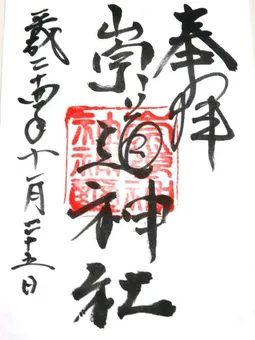 奉拝
崇道神社
平成二十四年十一月二十五日